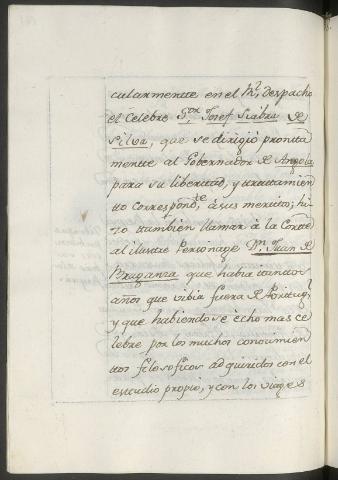 cularmente en el Rl. despacho
el celebre Sor. Josef Siabra de
Silva, que se dirigiò pronta
mente al Gobernador de Angola
para su libertad, y tratamien
to correspondte. à sus meritos; hi
zo tambien llamar à la Corte
al ilustre Personage Dn. Juan de
Braganza que habia tantos
años que vibia fuera de Portugl.
y que habiendose echo mas ce
lebre por los muchos conocimien
tos filosoficos adquiridos con el
estudio propio, y con los viages